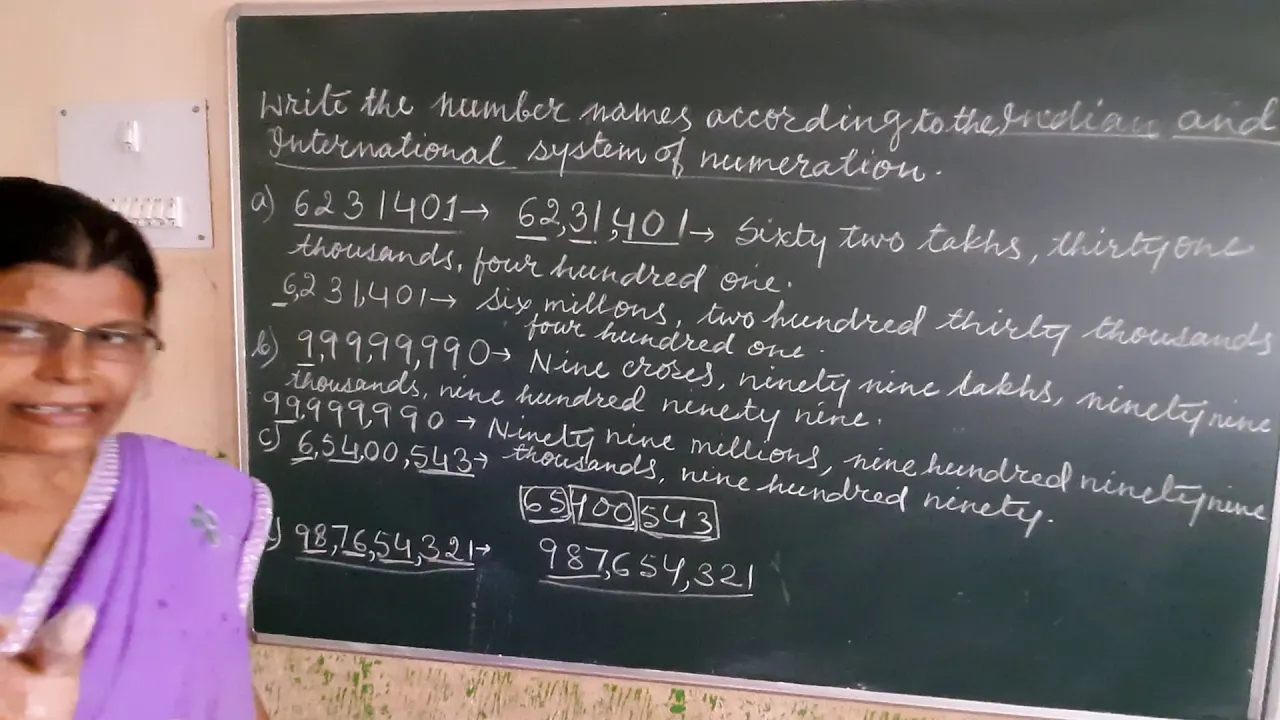 Write the number names according to the Indian and
International system of numeration.
a) 6231401→ 62,31,401→ Sixty two lakhs, thirty one
thousands, four hundred one.
6,231,401→ Six millons, two hundred thirty thousands
four hundred one.
b) 9,99,99,990→ Nine crores, ninety nine lakhs, ninety nine
thousands, nine hundred ninety nine.
99,999,990 → Ninety nine millions, nine hundred ninety nine
thousands, nine hundred ninety.
c) 6,54,00,543→
65 400 543
98,76,54,321→ 987,654,321